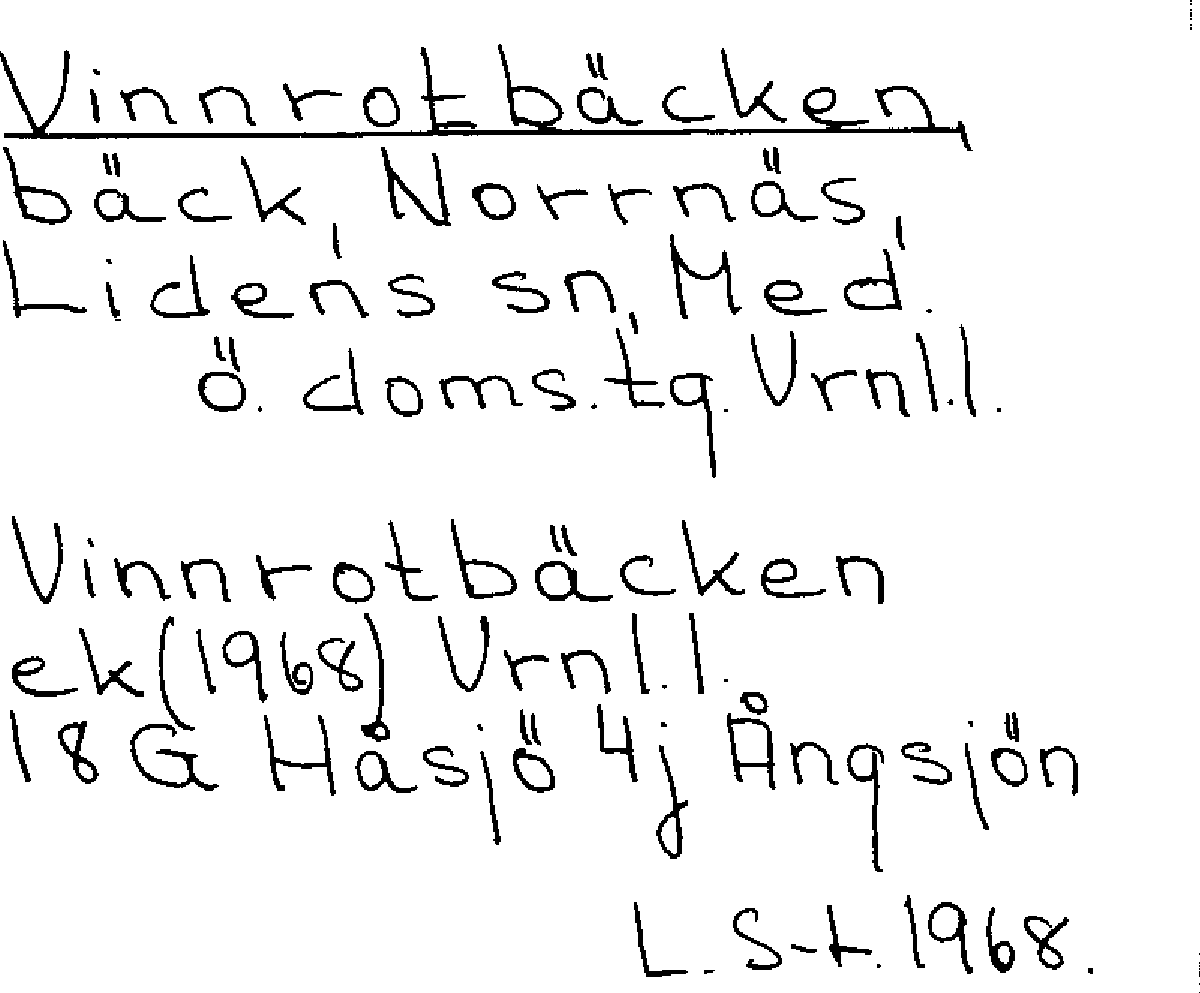 Vinnrotbäcken,
bäck, Norrnäs,
Lidens sn, Med.
Ö. doms.tg. Vrnl.l.
Vinnrotbäcken
ek(1968) Vrnl.l.
18G Håsjö 4j Ångsjön
L. S-t. 1968.